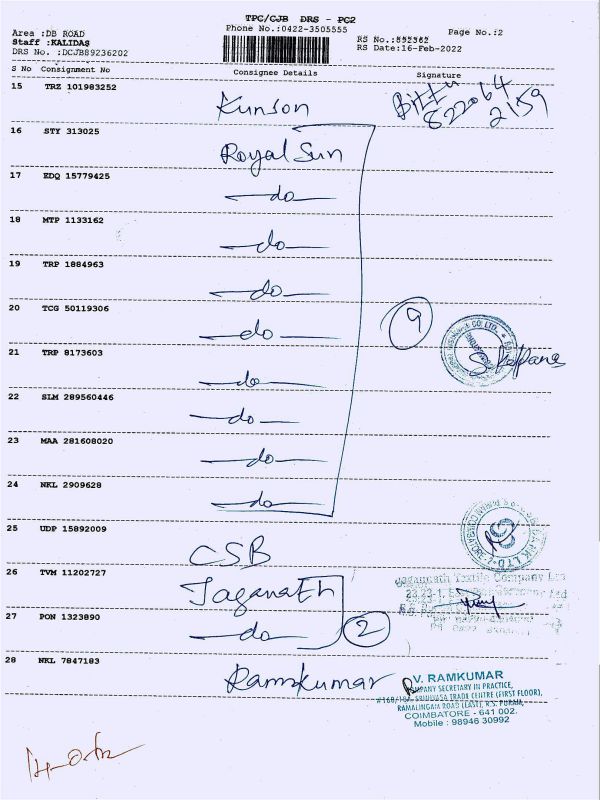 TPC/CJB DRS - PC2
Area :DB ROAD
Phone No.:0422-3505555
Page No.:2
Staff :KALIDAS
RS No.:892362
DRS No. :DCJB89236202
RS Date:16-Feb-2022
S No Consignment No Consignee Details Signature
15 TRZ 101983252 Kunson
822064
2159
16 STY 313025 Royal Sun
17 EDQ 15779425 do
18 MTP 1133162 do
19 TRP 1884963 do
20 TCG 50119306 do
9
21 TRP 8173603 do
22 SLM 289560446 do
23 MAA 281608020 do
24 NKL 2909628 do
25 UDP 15892009 CSB
26 TVM 11202727 Jaganath
Jagannath Textile Company Ltd
27 PON 1323890 do
2
28 NKL 7847183 Ramkumar
V. RAMKUMAR
COMPANY SECRETARY IN PRACTICE,
SRINIVASA TRADE CENTRE (FIRST FLOOR),
RAMALINGAM ROAD (EAST), R.S. PURAM,
COIMBATORE - 641 002.
Mobile : 98946 30992